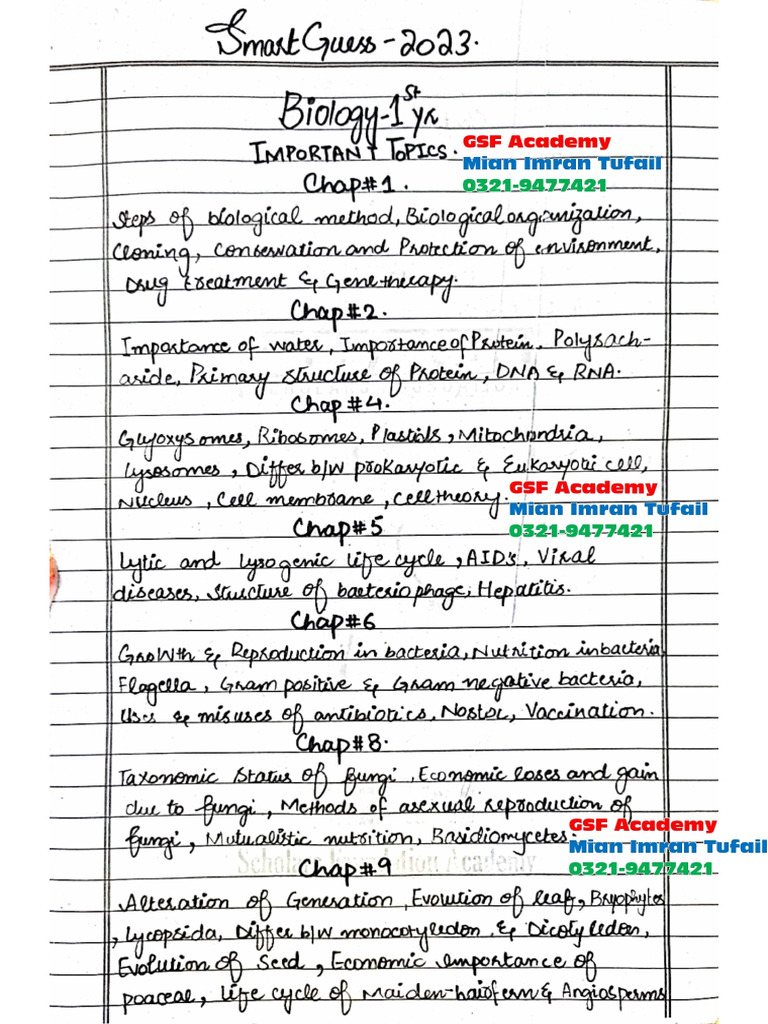 Smart Guess - 2023.
Biology-1st yr
IMPORTANT TOPICS.
GSF Academy
Mian Imran Tufail
0321-9477421
Chap#1.
Steps of biological method, Biological organization,
Cloning, Conservation and Protection of environment,
Drug treatment & Gene therapy.
Chap#2.
Importance of water, Importance of Protein, Polysach-
aride, Primary structure of Protein, DNA & RNA.
Chap#4.
Glyoxysomes, Ribosomes, Plastids, Mitochondria,
Lysosomes, Differ b/w prokaryotic & Eukaryotic cell,
Nucleus, Cell membrane, Cell theory.
GSF Academy
Mian Imran Tufail
0321-9477421
Chap#5
Lytic and Lysogenic life cycle, AID's, Viral
diseases, Structure of bacteriophage, Hepatitis.
Chap#6
Growth & Reproduction in bacteria, Nutrition in bacteria
Flagella, Gram positive & Gram negative bacteria,
Uses & misuses of antibiotics, Nostoc, Vaccination.
Chap#8.
Taxonomic Status of fungi, Economic loses and gain
due to fungi, Methods of asexual reproduction of
fungi, Mutualistic nutrition, Basidiomycetes.
GSF Academy
Mian Imran Tufail
0321-9477421
Chap#9
Alteration of Generation, Evolution of leaf, Bryophytes
, Lycopsida, Differ b/w monocotyledon & Dicotyledon,
Evolution of Seed, Economic importance of
poaceae, life cycle of Maiden-hair fern & Angiosperms